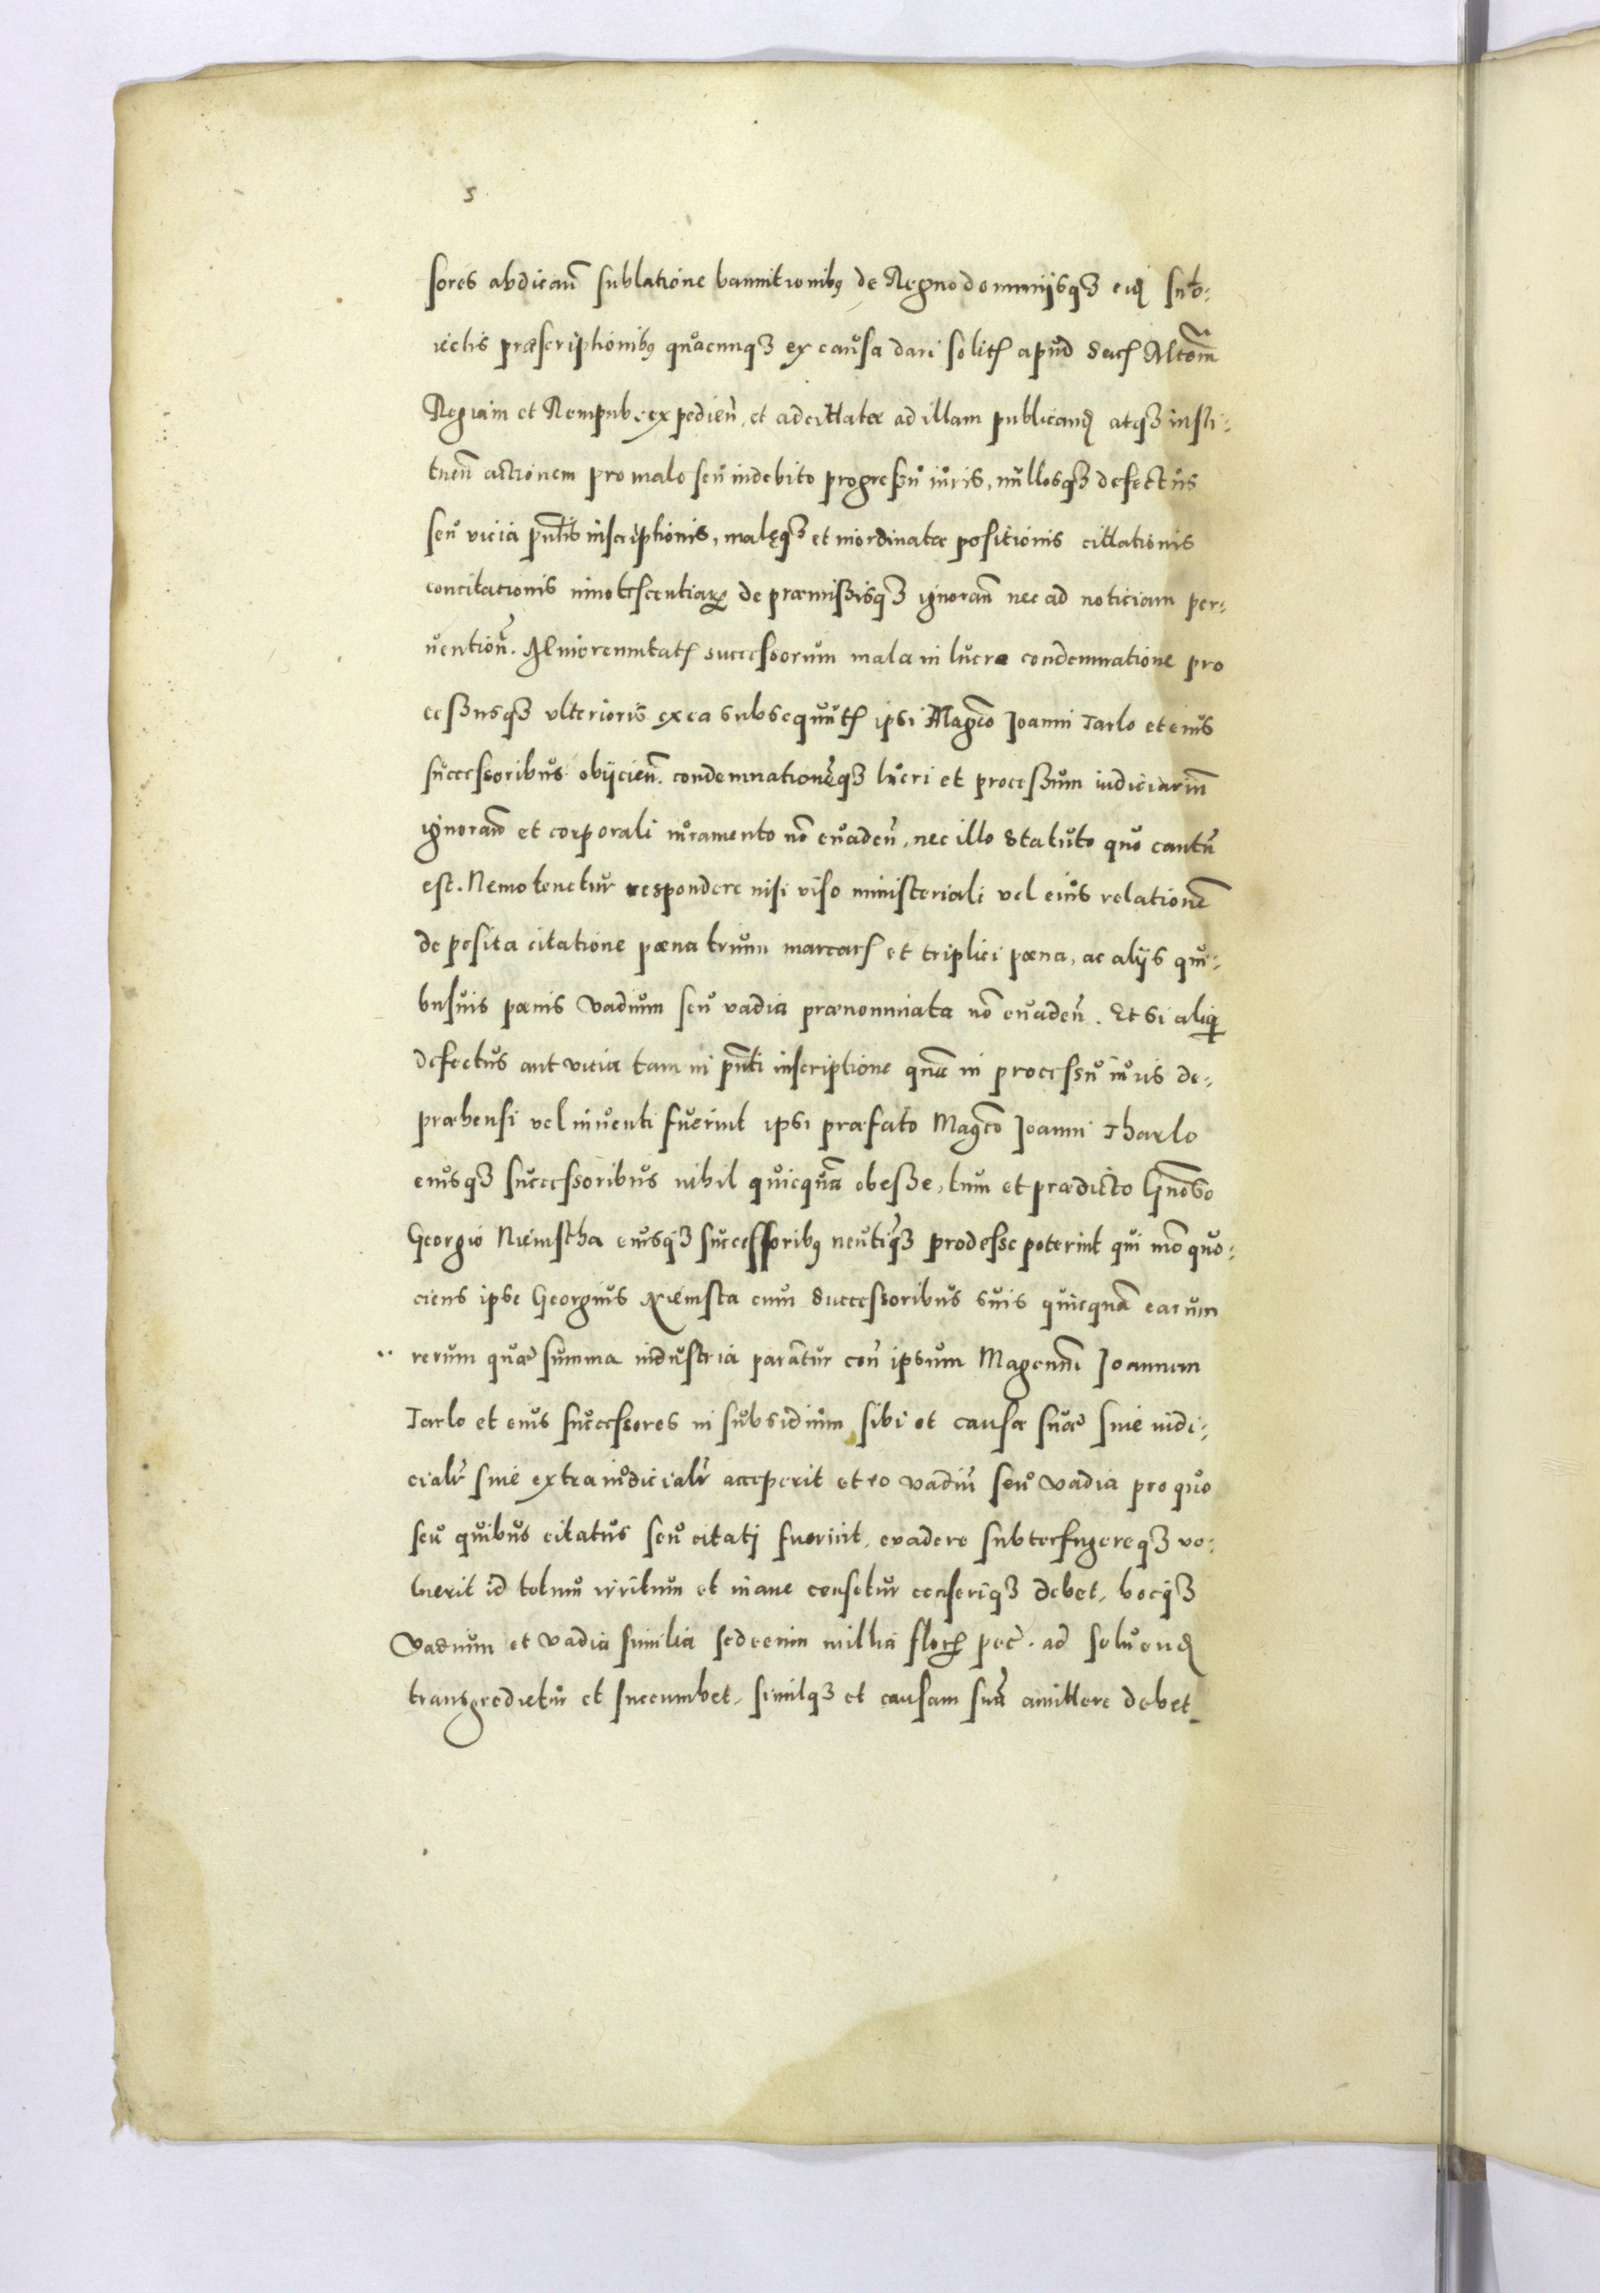 5
sores abdican̄ sublatione bannitionibꝰ de Regno dominijsqꝫ eid subie-
ictis præscriptionibꝰ quacunqꝫ ex causa dari solit apud Sac Mtem
Regiam et Rempub: expedien̄, et adcitatæ ad illam publicand atqꝫ insti-
tuen̄ actionem pro malo seu indebito progressu iuris, nullosqꝫ defectus
seu vicia pn̄tis inscriptionis, malęqꝫ et inordinatæ positionis citationis
concitationis innotescentiarꝫ de præmissisqꝫ ignoran̄ nec ad noticiam per-
uention̄. successorum mala in lucro condemnatione pro
cessusqꝫ vlterioris ex ea subsequut ipsi Magco Joanni Tarlo et eius
successoribus obijcien̄. condemnationēqꝫ lucri et processum iudiciariū
ignoran̄ et corporali iuramento nō euaden̄, nec illo Statuto quo cautū
est. Nemo tenetur respondere nisi viso ministeriali vel eius relationē
de posita citatione pœna trium marcar et triplici pœna, ac alijs qui-
busuis pœnis vadium seu vadia prænominata nō euaden̄. Et si aliqi
defectus aut vicia tam in pn̄ti inscriptione quā in processu iuris de-
præhensi vel inuenti fuerint ipsi præfato Magco Joanni Tharlo
eiusqꝫ successoribus nihil quicquā obesse, tum et prædicto Gnoso
Georgio Niemstha eiusqꝫ successoribꝰ neutiqꝫ prodesse poterint qui imo quo-
ciens ipse Georgius Niemsta cum Successoribus suis quicquā earum
rerum quæ summa industria parātur con̄ ipsum Magcum Joannem
Tarlo et eius successores in subsidium sibi et causæ suæ siue iudi-
cialr siue extraiudicialr acceperit et eo vadiū seu vadia pro quo
seu quibus citatus seu citati fuerint, evadere subterfugereqꝫ vo-
luerit id totum irritum et inane censetur censeriqꝫ debet, hocqꝫ
vadium et vadia similia sedecim millia florꝫ pec. ad soluend
transgredietur et succumbet, similqꝫ et causam suā amittere debet